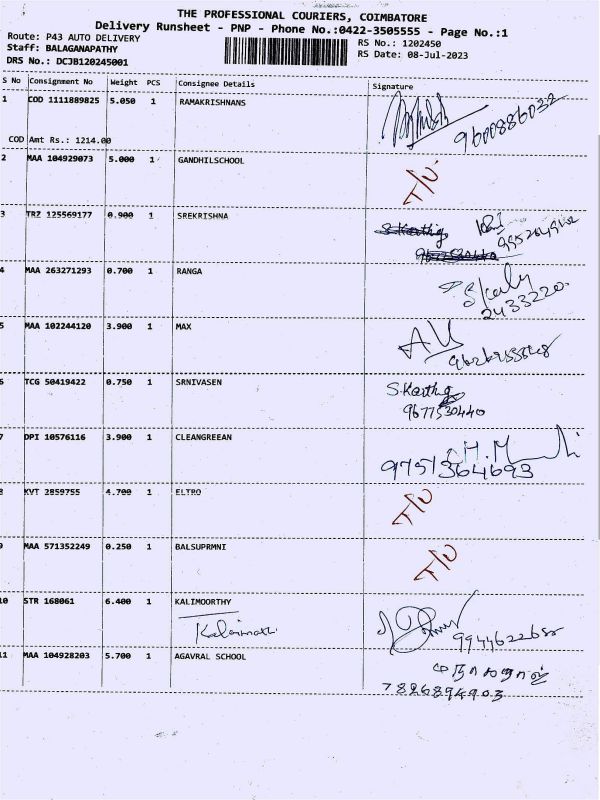 THE PROFESSIONAL COURIERS, COIMBATORE
Delivery Runsheet - PNP - Phone No.:0422-3505555 - Page No.:1
Route: P43 AUTO DELIVERY
Staff: BALAGANAPATHY
DRS No.: DCJB120245001
RS No.: 1202450
RS Date: 08-Jul-2023
S No Consignment No Weight PCS Consignee Details Signature
1 COD 1111889825 5.050 1 RAMAKRISHNANS
9600886032
COD Amt Rs.: 1214.00
2 MAA 104929073 5.000 1 GANDHILSCHOOL T/U
3 TRZ 125569177 0.900 1 SREKRISHNA
S.Karthig
4 MAA 263271293 0.700 1 RANGA
2433220
5 MAA 102244120 3.900 1 MAX
6 TCG 50419422 0.750 1 SRNIVASEN S.Karthig
9677530440
7 DPI 10576116 3.900 1 CLEANGREEAN
9751364693
8 KVT 2859755 4.700 1 ELTRO T/U
9 MAA 571352249 0.250 1 BALSUPRMNI T/U
10 STR 168061 6.400 1 KALIMOORTHY
11 MAA 104928203 5.700 1 AGAVRAL SCHOOL
7826894903